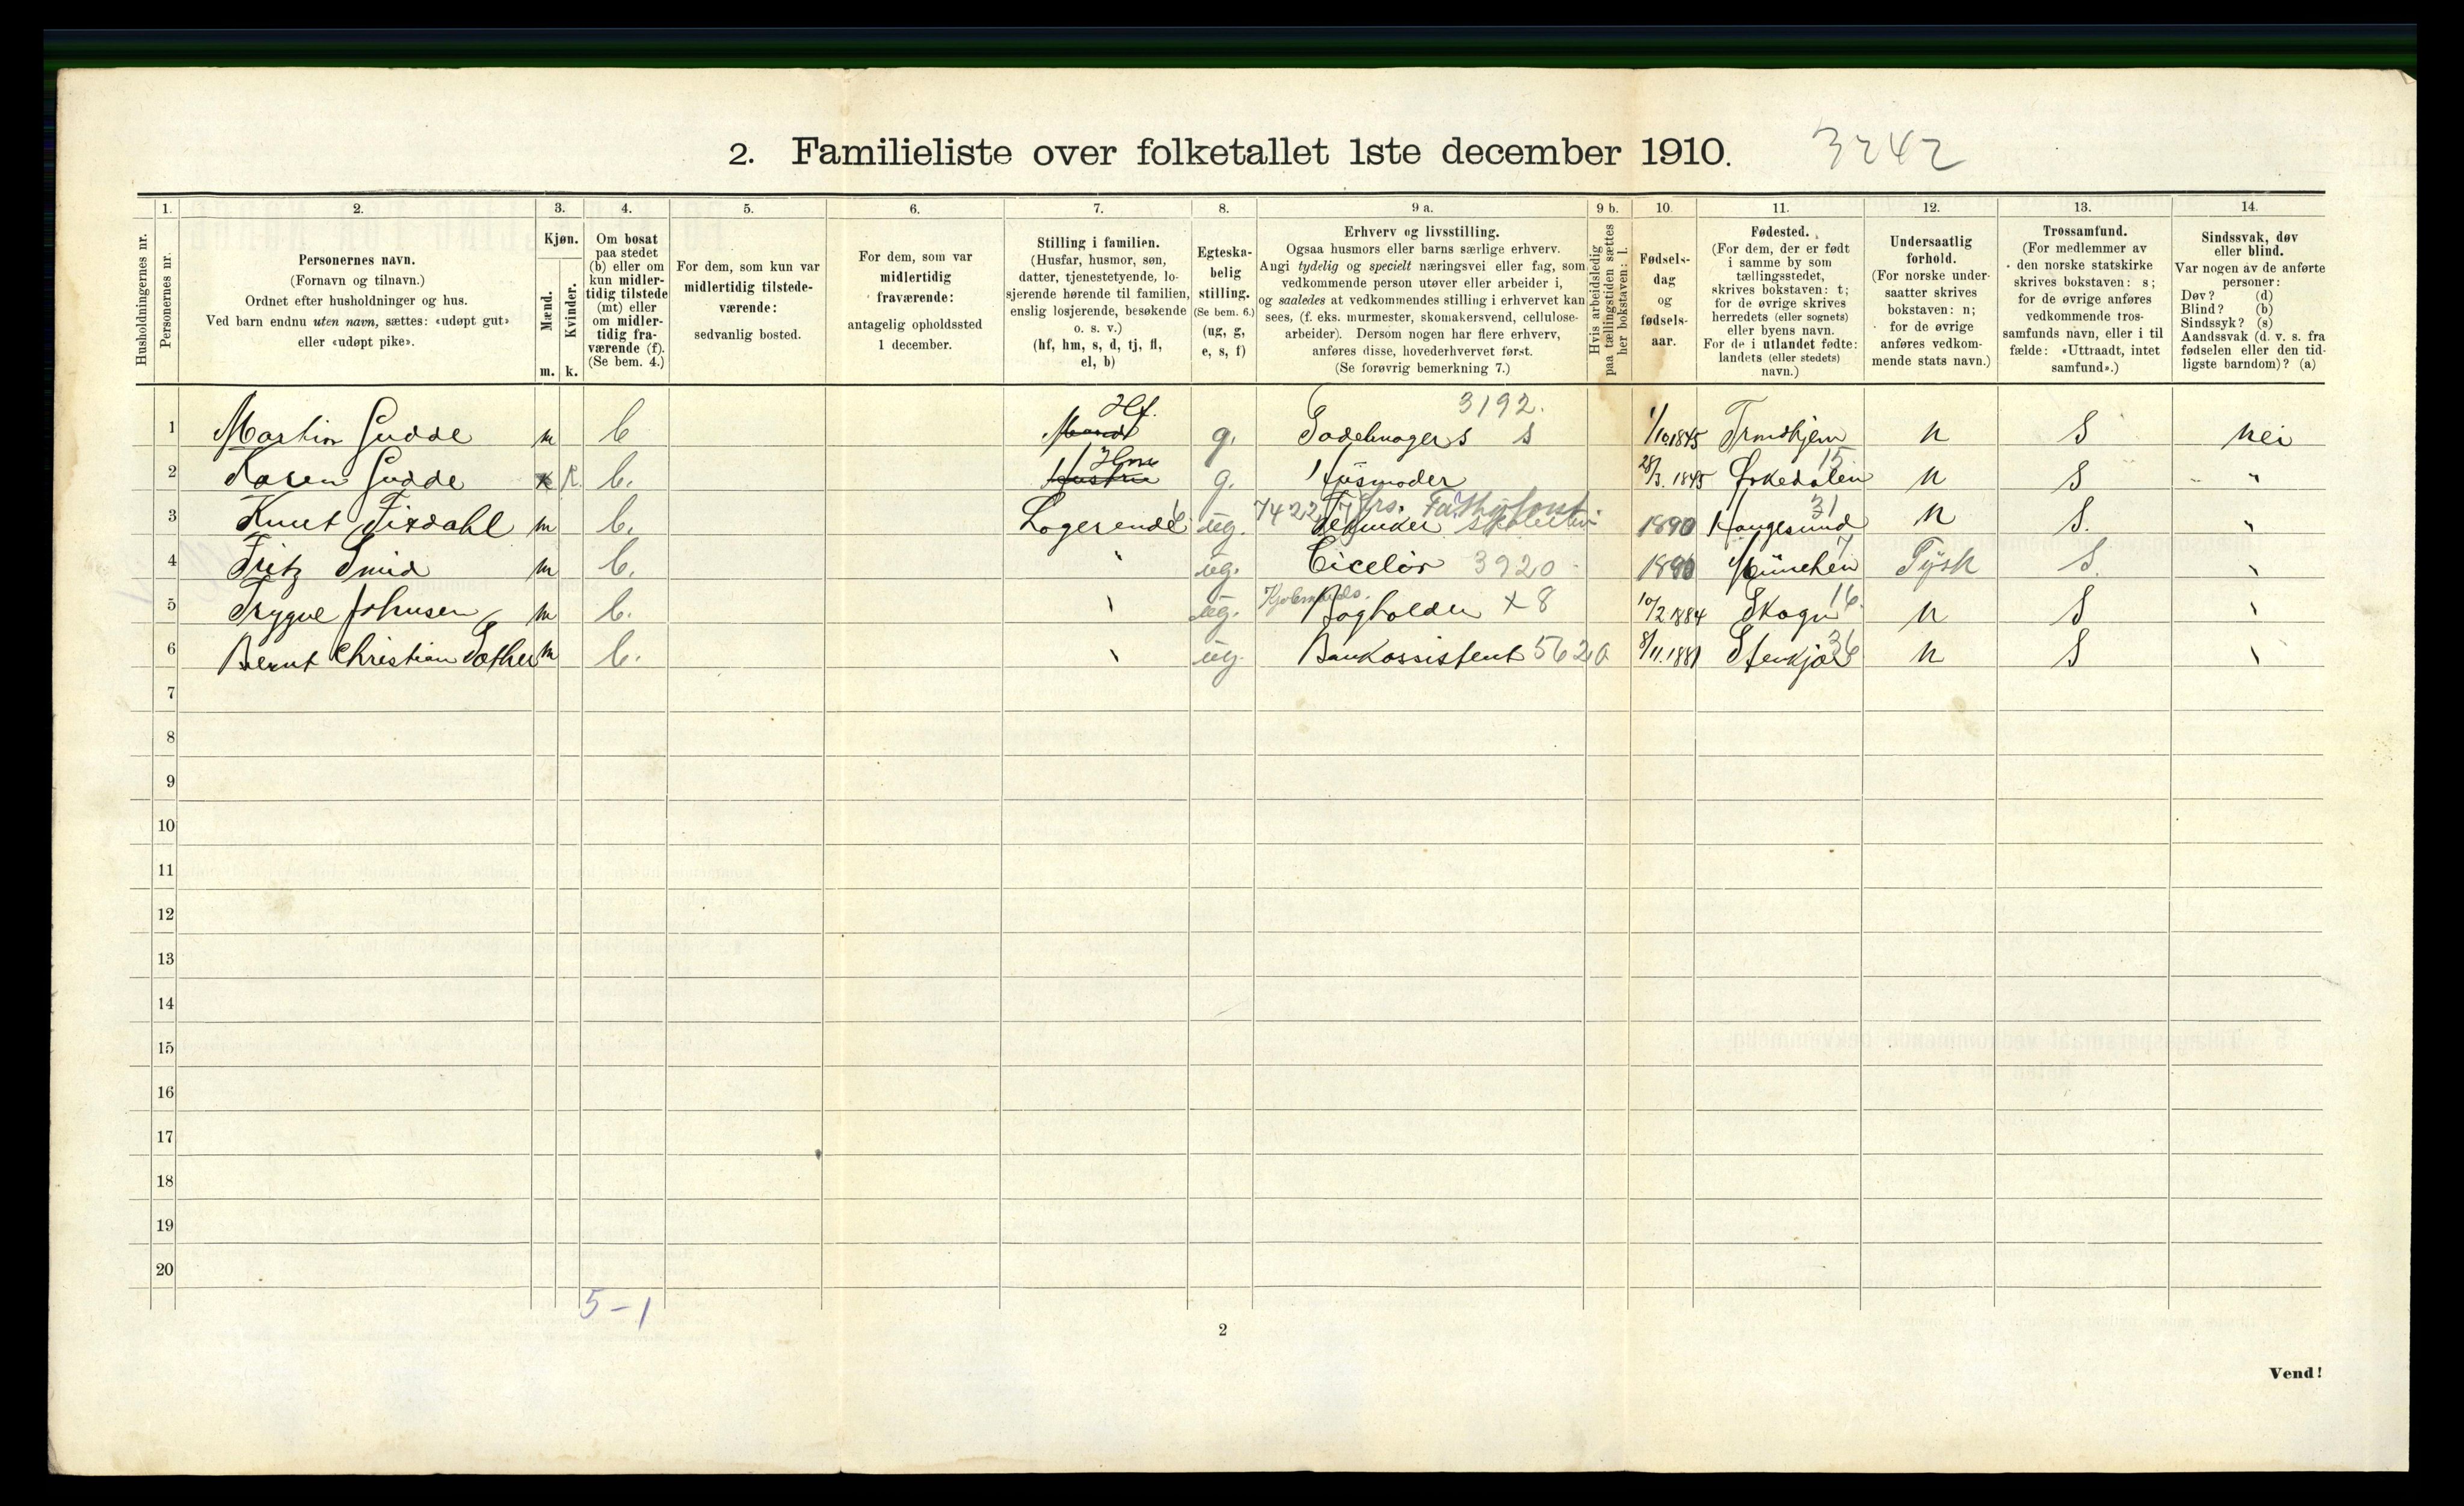 2. Familieliste over folketallet 1ste december 1910. 3242
1. 2. 3. 4. 5. 6. 7. 8. 9 a. 9 b. 10. 11. 12. 13. 14.
Husholdningernes nr.
Personernes nr.
Personernes navn.
(Fornavn og tilnavn.)
Ordnet efter husholdninger og hus.
Ved barn endnu uten navn, sættes: «udøpt gut»
eller «udøpt pike».
Kjøn.
Mænd.
Kvinder.
m. k.
Om bosat
paa stedet
(b) eller om
kun midler-
tidig tilstede
(mt) eller
om midler-
tidig fra-
værende (f).
(Se bem. 4.)
For dem, som kun var
midlertidig tilstede-
værende:
sedvanlig bosted.
For dem, som var
midlertidig
fraværende:
antagelig opholdssted
1 december.
Stilling i familien.
(Husfar, husmor, søn,
datter, tjenestetyende, lo-
sjerende hørende til familien,
enslig losjerende, besøkende
o. s. v.)
(hf, hm, s, d, tj, fl,
el, b)
Egteska-
belig
stilling.
(Se bem. 6.)
(ug, g,
e, s, f)
Erhverv og livsstilling.
Ogsaa husmors eller barns særlige erhverv.
Angi tydelig og specielt næringsvei eller fag, som
vedkommende person utøver eller arbeider i,
og saaledes at vedkommendes stilling i erhvervet kan
sees, (f. eks. murmester, skomakersvend, cellulose-
arbeider). Dersom nogen har flere erhverv,
anføres disse, hovederhvervet først.
(Se forøvrig bemerkning 7.)
Hvis arbeidsledig
paa tællingstiden sættes
her bokstaven: l.
Fødsels-
dag
og
fødsels-
aar.
Fødested.
(For dem, der er født
i samme by som
tællingsstedet,
skrives bokstaven: t;
for de øvrige skrives
herredets (eller sognets)
eller byens navn.
For de i utlandet fødte:
landets (eller stedets)
navn.)
Undersaatlig
forhold.
(For norske under-
saatter skrives
bokstaven: n;
for de øvrige
anføres vedkom-
mende stats navn.)
Trossamfund.
(For medlemmer av
den norske statskirke
skrives bokstaven: s;
for de øvrige anføres
vedkommende tros-
samfunds navn, eller i til
fælde: «Uttraadt, intet
samfund».)
Sindssvak, døv
eller blind.
Var nogen av de anførte
personer:
Døv? (d)
Blind? (b)
Sindssyk? (s)
Aandssvak (d. v. s. fra
fødselen eller den tid-
ligste barndom)? (a)
Hf. 3192.
1 Martin Gudde m b Mand g. Sadelmager s 1/10 1845 Trondhjem n S nei
Hm 15
2 Karen Gudde k b. Hustru g. Husmoder 28/3. 1845 Orkedalen n S "
7422 31
3 Knut m b. Logerende ug. Tekniker 1890 Haugesund n S. "
7
4 Fritz Smid m b. " ug. Ciselør 3920 1890 München Tysk S. "
16
5 Trygve Johnsen m b. " ug. Bogholder x 8 10/2 1884 Skogn n S "
36
6 Bernt Christian m b. " ug. Bankassistent 5620 8/11. 1881 Stenkjær n S "
7
8
9
10
11
12
13
14
15
16
17
18
19
20
5-1
2
Vend!